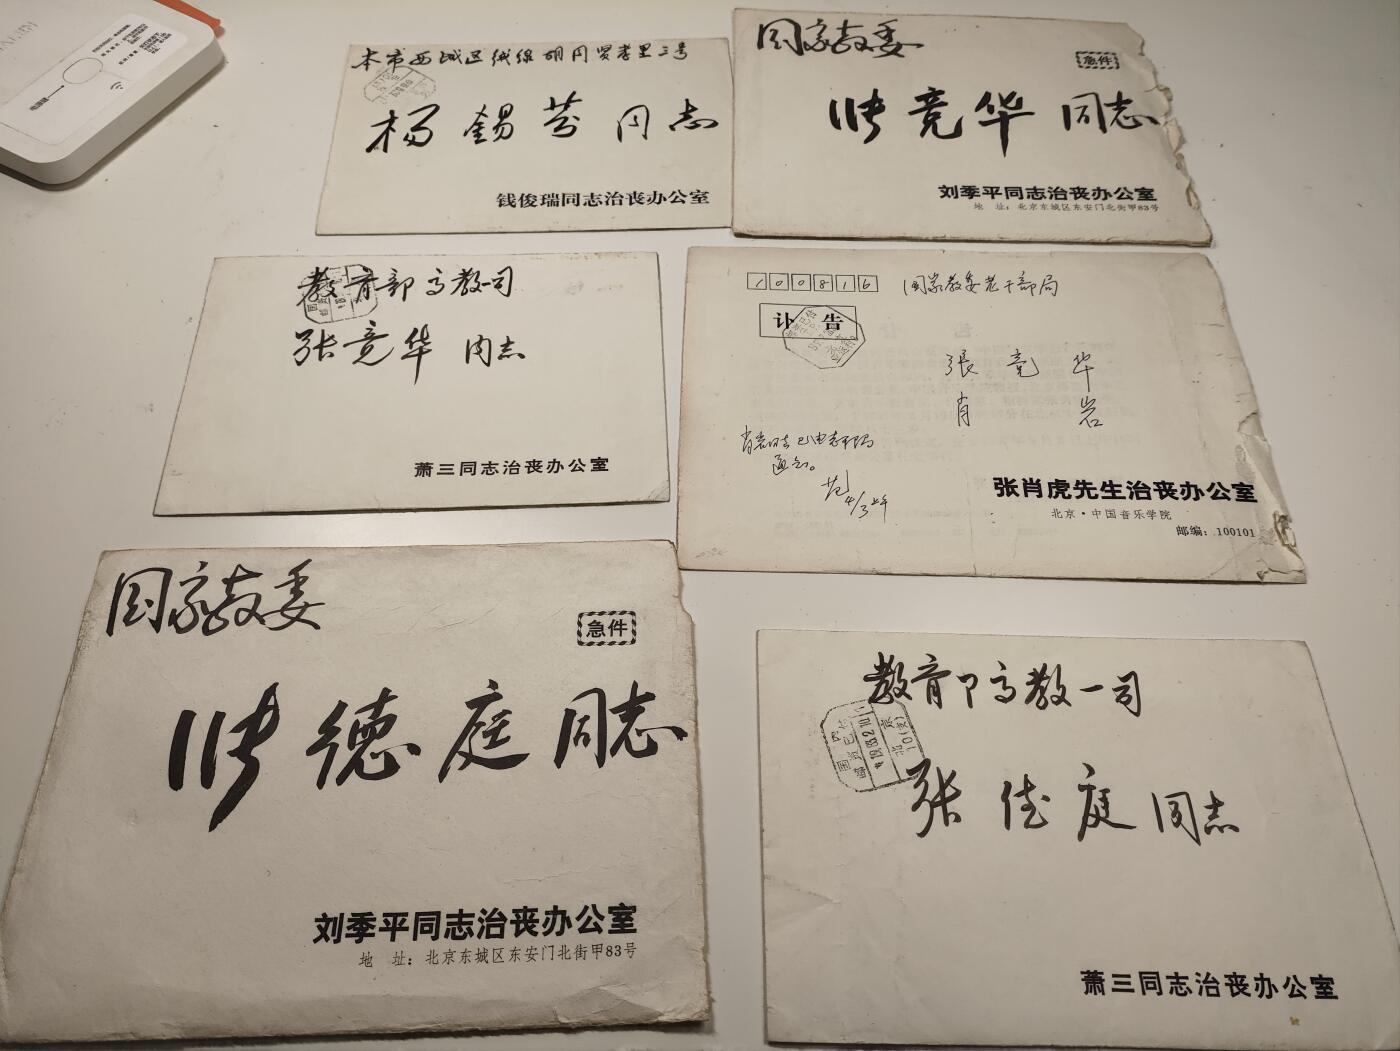 本市西城区绒线胡同贤孝里三号
杨锡芬同志
钱俊瑞同志治丧办公室
国家教委
急件
张竞华同志
刘季平同志治丧办公室
地 址：北京东城区东安门北街甲83号
教育部高教一司
张竞华同志
萧三同志治丧办公室
100816
国家教委老干部局
讣告
張竞华
肖岩
肖岩同志已由老干局
通知。
4/3上午
张肖虎先生治丧办公室
北京·中国音乐学院
邮编：100101
国家教委
急件
张德庭同志
刘季平同志治丧办公室
地 址：北京东城区东安门北街甲83号
教育部高教一司
张德庭同志
萧三同志治丧办公室